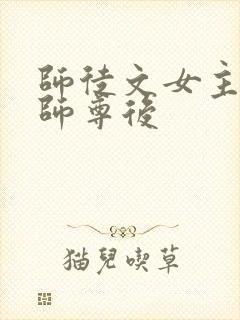 師徒文女主
師尊後
猫兒喫草